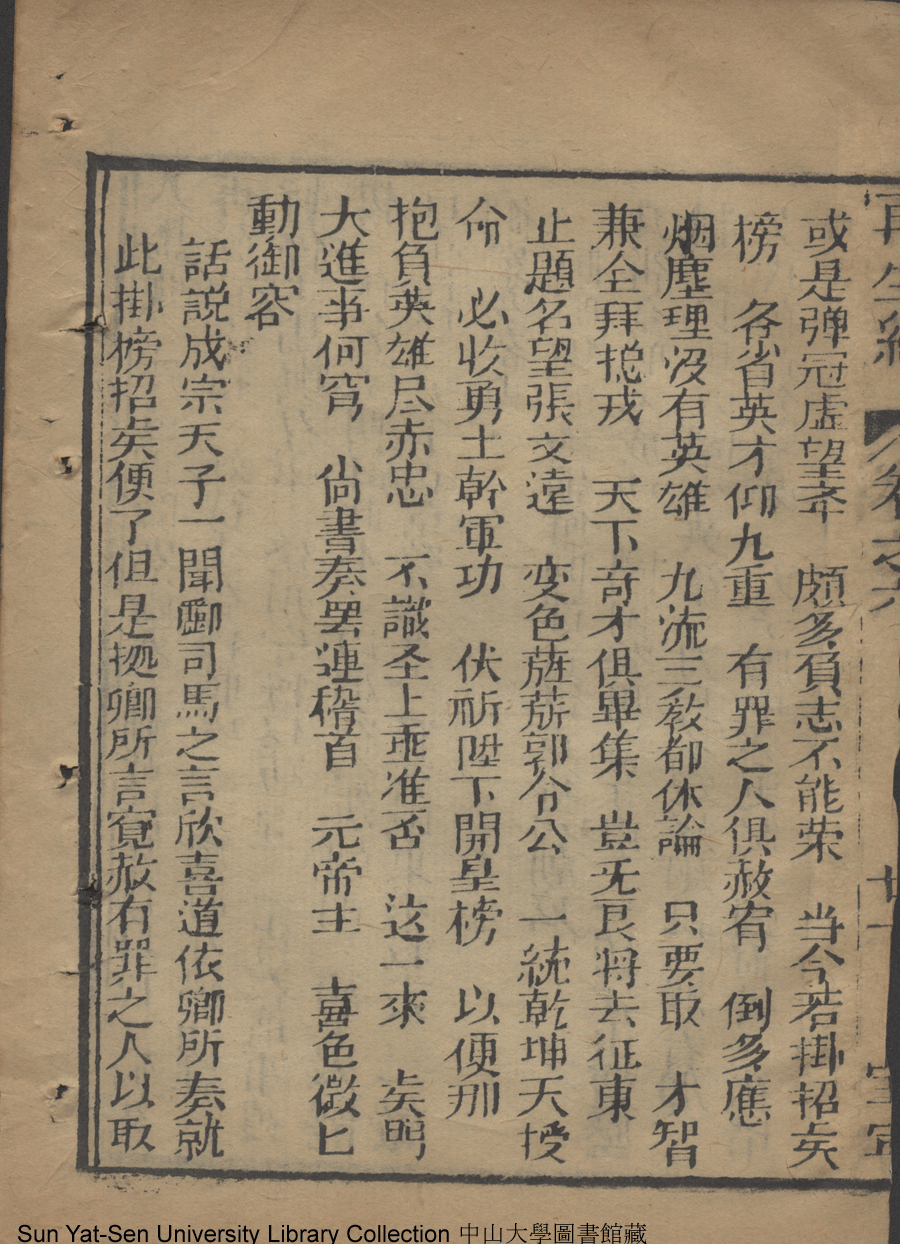 再生緣 卷之六 廿一 宝宁
或是弹冠虚望幸　頗多負志不能荣　当今若掛招矣
榜　各省英才仰九重　有罪之人俱赦宥　倒多應
烟塵理没有英雄　九流三教都休論　只要取　才智
兼全拜捴戎　天下奇才俱畢集　豈无良将去征東
止題名望張文遠　变色旌旂郭令公　一統乾坤天授
命　必收勇士幹軍功　伏祈陞下開皇榜　以便那
抱負英雄尽赤忠　不識圣上乖准否　这一來　矣門
大進事何窮　尚書奏罢連稽首　元帝主　喜色微匕
動御容
話説成宗天子一聞酈司馬之言欣喜道依卿所奏就
此掛榜招矣便了但是拠卿所言寛赦有罪之人以取
Sun Yat-Sen University Library Collection 中山大學圖書館藏